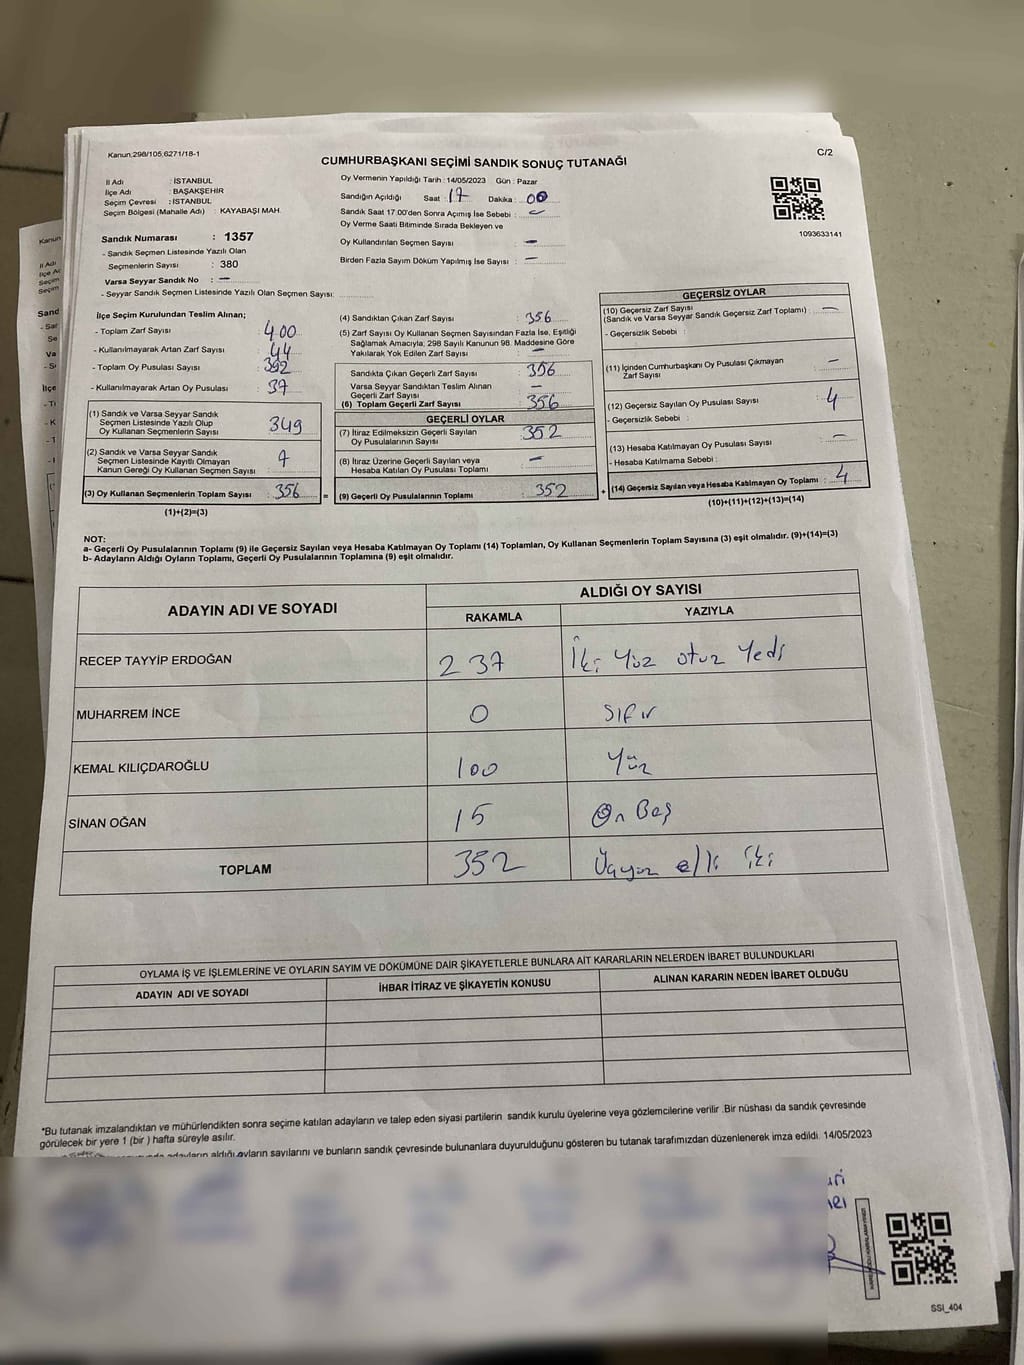 Kanun,298/105,6271/18-1
C/2
CUMHURBAŞKANI SEÇİMİ SANDIK SONUÇ TUTANAĞI
İl Adı : İSTANBUL
İlçe Adı : BAŞAKŞEHİR
Seçim Çevresi : İSTANBUL
Seçim Bölgesi (Mahalle Adı) : KAYABAŞI MAH.
Sandık Numarası : 1357
- Sandık Seçmen Listesinde Yazılı Olan
Seçmenlerin Sayısı : 380
Varsa Seyyar Sandık No : –
- Seyyar Sandık Seçmen Listesinde Yazılı Olan Seçmen Sayısı:
Oy Vermenin Yapıldığı Tarih : 14/05/2023 Gün : Pazar
Sandığın Açıldığı Saat : 17 Dakika : 00
Sandık Saat 17.00'den Sonra Açımış İse Sebebi : –
Oy Verme Saati Bitiminde Sırada Bekleyen ve
Oy Kullandırılan Seçmen Sayısı : –
Birden Fazla Sayım Döküm Yapılmış İse Sayısı : –
1093633141
İlçe Seçim Kurulundan Teslim Alınan;
- Toplam Zarf Sayısı : 400
- Kullanılmayarak Artan Zarf Sayısı : 44
- Toplam Oy Pusulası Sayısı : 392
- Kullanılmayarak Artan Oy Pusulası : 37
(1) Sandık ve Varsa Seyyar Sandık
Seçmen Listesinde Yazılı Olup
Oy Kullanan Seçmenlerin Sayısı : 349
(2) Sandık ve Varsa Seyyar Sandık
Seçmen Listesinde Kayıtlı Olmayan
Kanun Gereği Oy Kullanan Seçmen Sayısı : 7
(3) Oy Kullanan Seçmenlerin Toplam Sayısı : 356
(1)+(2)=(3)
(4) Sandıktan Çıkan Zarf Sayısı : 356
(5) Zarf Sayısı Oy Kullanan Seçmen Sayısından Fazla İse, Eşitliği
Sağlamak Amacıyla, 298 Sayılı Kanunun 98. Maddesine Göre
Yakılarak Yok Edilen Zarf Sayısı : –
Sandıkta Çıkan Geçerli Zarf Sayısı : 356
Varsa Seyyar Sandıktan Teslim Alınan
Geçerli Zarf Sayısı : –
(6) Toplam Geçerli Zarf Sayısı : 356
GEÇERLİ OYLAR
(7) İtiraz Edilmeksizin Geçerli Sayılan
Oy Pusulalarının Sayısı : 352
(8) İtiraz Üzerine Geçerli Sayılan veya
Hesaba Katılan Oy Pusulası Toplamı : –
= (9) Geçerli Oy Pusulalarının Toplamı : 352
GEÇERSİZ OYLAR
(10) Geçersiz Zarf Sayısı
(Sandık ve Varsa Seyyar Sandık Geçersiz Zarf Toplamı) : –
- Geçersizlik Sebebi :
(11) İçinden Cumhurbaşkanı Oy Pusulası Çıkmayan
Zarf Sayısı : –
(12) Geçersiz Sayılan Oy Pusulası Sayısı : 4
- Geçersizlik Sebebi :
(13) Hesaba Katılmayan Oy Pusulası Sayısı : –
- Hesaba Katılmama Sebebi :
+ (14) Geçersiz Sayılan veya Hesaba Katılmayan Oy Toplamı : 4
(10)+(11)+(12)+(13)=(14)
NOT:
a- Geçerli Oy Pusulalarının Toplamı (9) ile Geçersiz Sayılan veya Hesaba Katılmayan Oy Toplamı (14) Toplamları, Oy Kullanan Seçmenlerin Toplam Sayısına (3) eşit olmalıdır. (9)+(14)=(3)
b- Adayların Aldığı Oyların Toplamı, Geçerli Oy Pusulalarının Toplamına (9) eşit olmalıdır.
ADAYIN ADI VE SOYADI
ALDIĞI OY SAYISI
RAKAMLA YAZIYLA
RECEP TAYYİP ERDOĞAN 237 İki Yüz otuz Yedi
MUHARREM İNCE 0 Sıfır
KEMAL KILIÇDAROĞLU 100 Yüz
SİNAN OĞAN 15 On Beş
TOPLAM 352 Üçyüz elli iki
OYLAMA İŞ VE İŞLEMLERİNE VE OYLARIN SAYIM VE DÖKÜMÜNE DAİR ŞİKAYETLERLE BUNLARA AİT KARARLARIN NELERDEN İBARET BULUNDUKLARI
ADAYIN ADI VE SOYADI İHBAR İTİRAZ VE ŞİKAYETİN KONUSU ALINAN KARARIN NEDEN İBARET OLDUĞU
*Bu tutanak imzalandıktan ve mühürlendikten sonra seçime katılan adayların ve talep eden siyasi partilerin sandık kurulu üyelerine veya gözlemcilerine verilir .Bir nüshası da sandık çevresinde
görülecek bir yere 1 (bir ) hafta süreyle asılır.
adayların aldığı oyların sayılarını ve bunların sandık çevresinde bulunanlara duyurulduğunu gösteren bu tutanak tarafımızdan düzenlenerek imza edildi. 14/05/2023
SSI_404